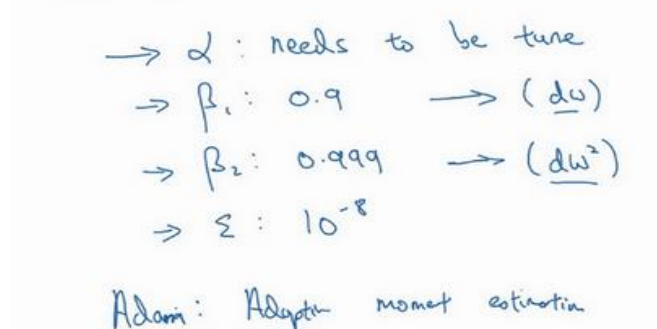 → α : needs to be tune
→ β₁ : 0.9 → (dw)
→ β₂ : 0.999 → (dw²)
→ ε : 10⁻⁸
Adam : Adaptin momet estimation